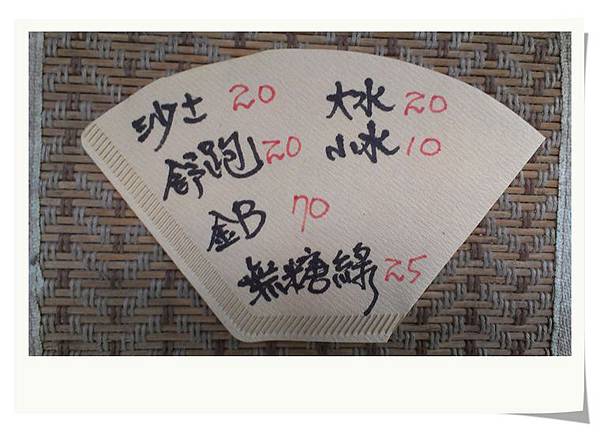 沙士 20 大水 20
舒跑 20 小水 10
金B 70
無糖綠 25